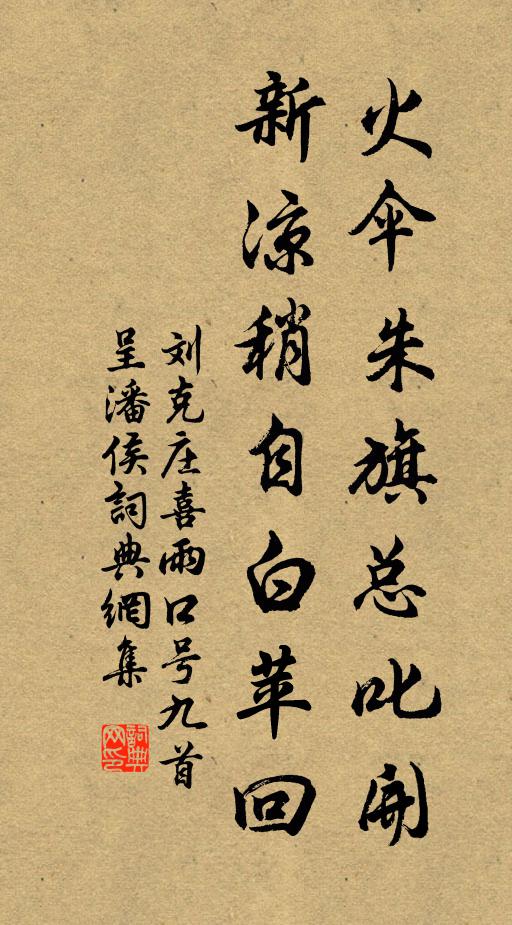 火伞朱旗总叱开
新凉稍自白苹回
刘克庄喜雨口号九首
呈潘侯詞典網集
詞典网印